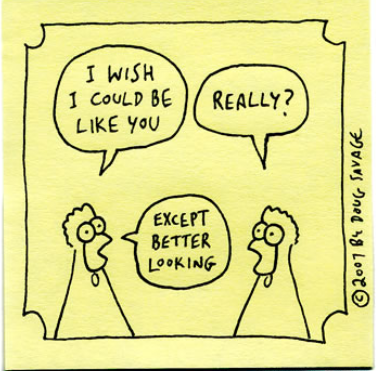 I WISH
I COULD BE
LIKE YOU
REALLY?
EXCEPT
BETTER
LOOKING
©2007 BY DOUG SAVAGE